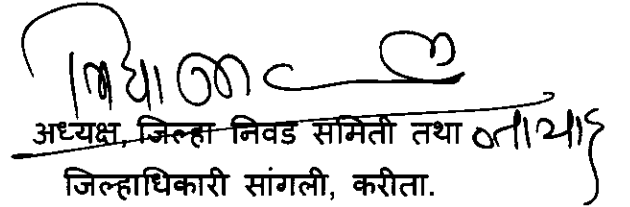 अध्यक्ष, जिल्हा निवड समिती तथा
जिल्हाधिकारी सांगली, करीता.